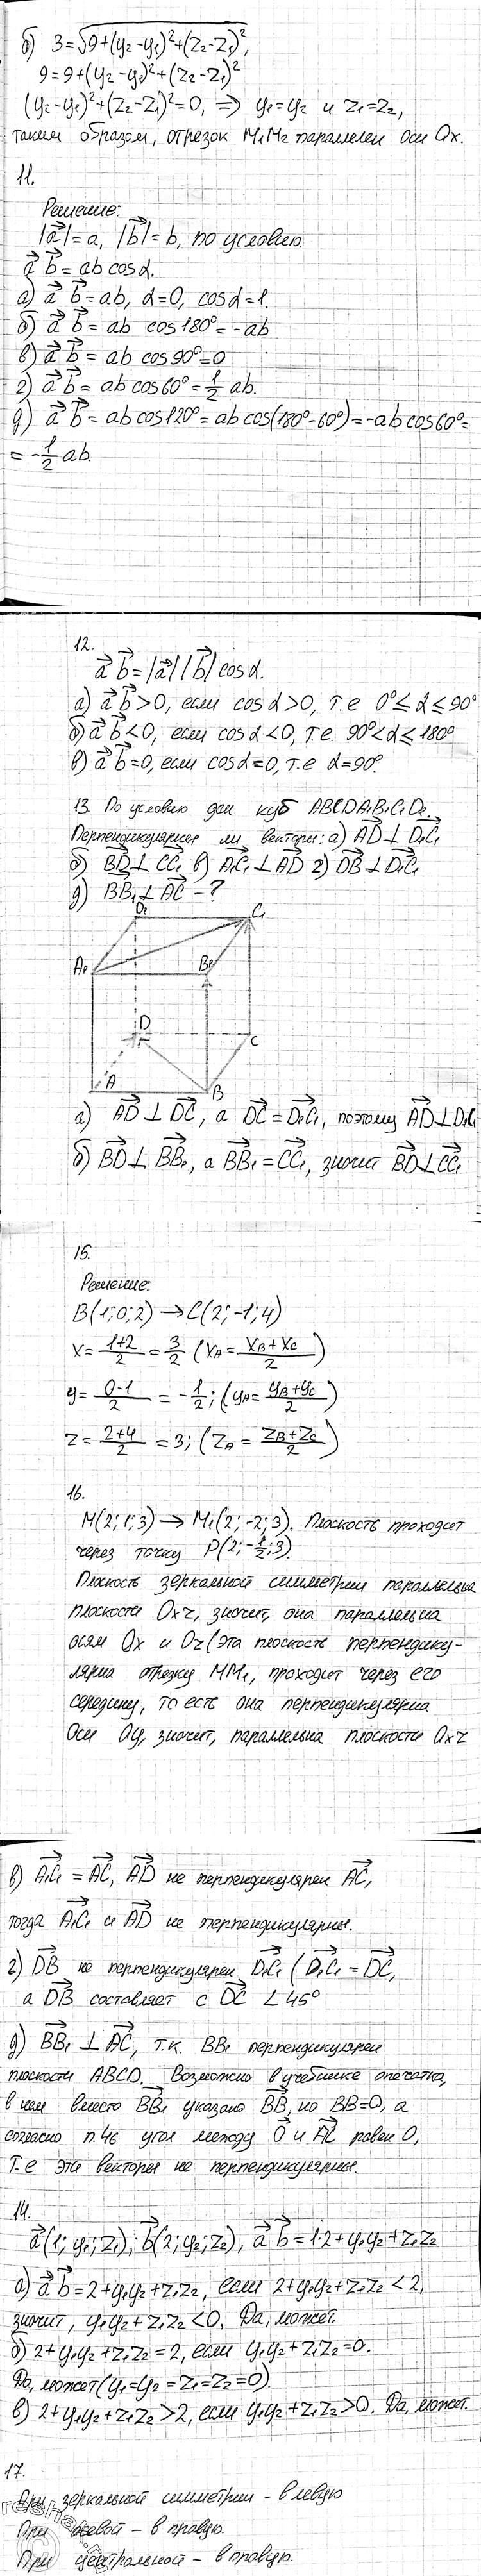 б) 3=√9+(y₂-y₁)²+(z₂-z₁)²,
9=9+(y₂-y₁)²+(z₂-z₁)²
(y₂-y₁)²+(z₂-z₁)²=0, ⇒ y₁=y₂ и z₁=z₂,
таким образом, отрезок M₁M₂ параллелен оси Ox.
11.
Решение:
|a⃗|=a, |b⃗|=b, по условию
a⃗ b⃗=ab cosα.
а) a⃗ b⃗=ab, α=0, cosα=1.
б) a⃗ b⃗= ab cos180°=-ab
в) a⃗ b⃗= ab cos90°=0
г) a⃗ b⃗= ab cos60°=1/2 ab.
д) a⃗ b⃗=ab cos120°=ab cos(180°-60°)=-ab cos60°=
=-1/2 ab.
12.
a⃗ b⃗=|a⃗||b⃗|cosα.
а) a⃗ b⃗>0, если cosα>0, т.е 0°≤α≤90°
б) a⃗ b⃗<0, если cosα<0, т.е. 90°<α≤180°
в) a⃗ b⃗=0, если cosα=0, т.е α=90°.
13. По условию дан куб ABCDA₁B₁C₁D₁.
Перпендикулярны ли векторы: а) AD⊥D₁C₁
б) BD⊥CC₁ в) A₁C₁⊥AD г) DB⊥D₁C₁
д) BB₁⊥AC -?
D₁ C₁
A₁ B₁
D C
A B
а) AD⊥DC, а DC=D₁C₁, поэтому AD⊥D₁C₁
б) BD⊥BB₁, а BB₁=CC₁, значит BD⊥CC₁
15.
Решение:
B(1;0;2)→C(2;-1;4)
x=(1+2)/2=3/2 (xA=(xB+xC)/2)
y=(0-1)/2=-1/2; (yA=(yB+yC)/2)
z=(2+4)/2=3; (zA=(zB+zC)/2)
16.
M(2;1;3)→M₁(2;-2;3). Плоскость проходит
через точку P(2;-1/2;3).
Плоскость зеркальной симметрии параллельна
плоскости Oxz, значит, она параллельна
осям Ox и Oz (эта плоскость перпендику-
лярна отрезку MM₁, проходит через его
середину, то есть она перпендикулярна
Оси Oy, значит, параллельна плоскости Oxz
в) A₁C₁=AC, AD не перпендикулярен AC,
тогда A₁C₁ и AD не перпендикулярны.
г) DB не перпендикулярен D₁C₁ (D₁C₁=DC,
а DB составляет с DC ∠45°
д) BB₁⊥AC, т.к. BB₁ перпендикулярен
плоскости ABCD. Возможно в учебнике опечатка,
в нем вместо BB₁ указано BB, но BB=0, а
согласно п.46 угол между 0⃗ и AC равен 0,
т.е эти векторы не перпендикулярны.
14.
a⃗(1;y₁;z₁); b⃗(2;y₂;z₂), a⃗ b⃗=1·2+y₁y₂+z₁z₂
а) a⃗ b⃗=2+y₁y₂+z₁z₂, если 2+y₁y₂+z₁z₂<2,
значит, y₁y₂+z₁z₂<0. Да, может.
б) 2+y₁y₂+z₁z₂=2, если y₁y₂+z₁z₂=0.
Да, может (y₁=y₂=z₁=z₂=0).
в) 2+y₁y₂+z₁z₂>2, если y₁y₂+z₁z₂>0. Да, может.
17.
При зеркальной симметрии - в левую
При осевой - в правую.
При центральной - в правую.
reshak.ru